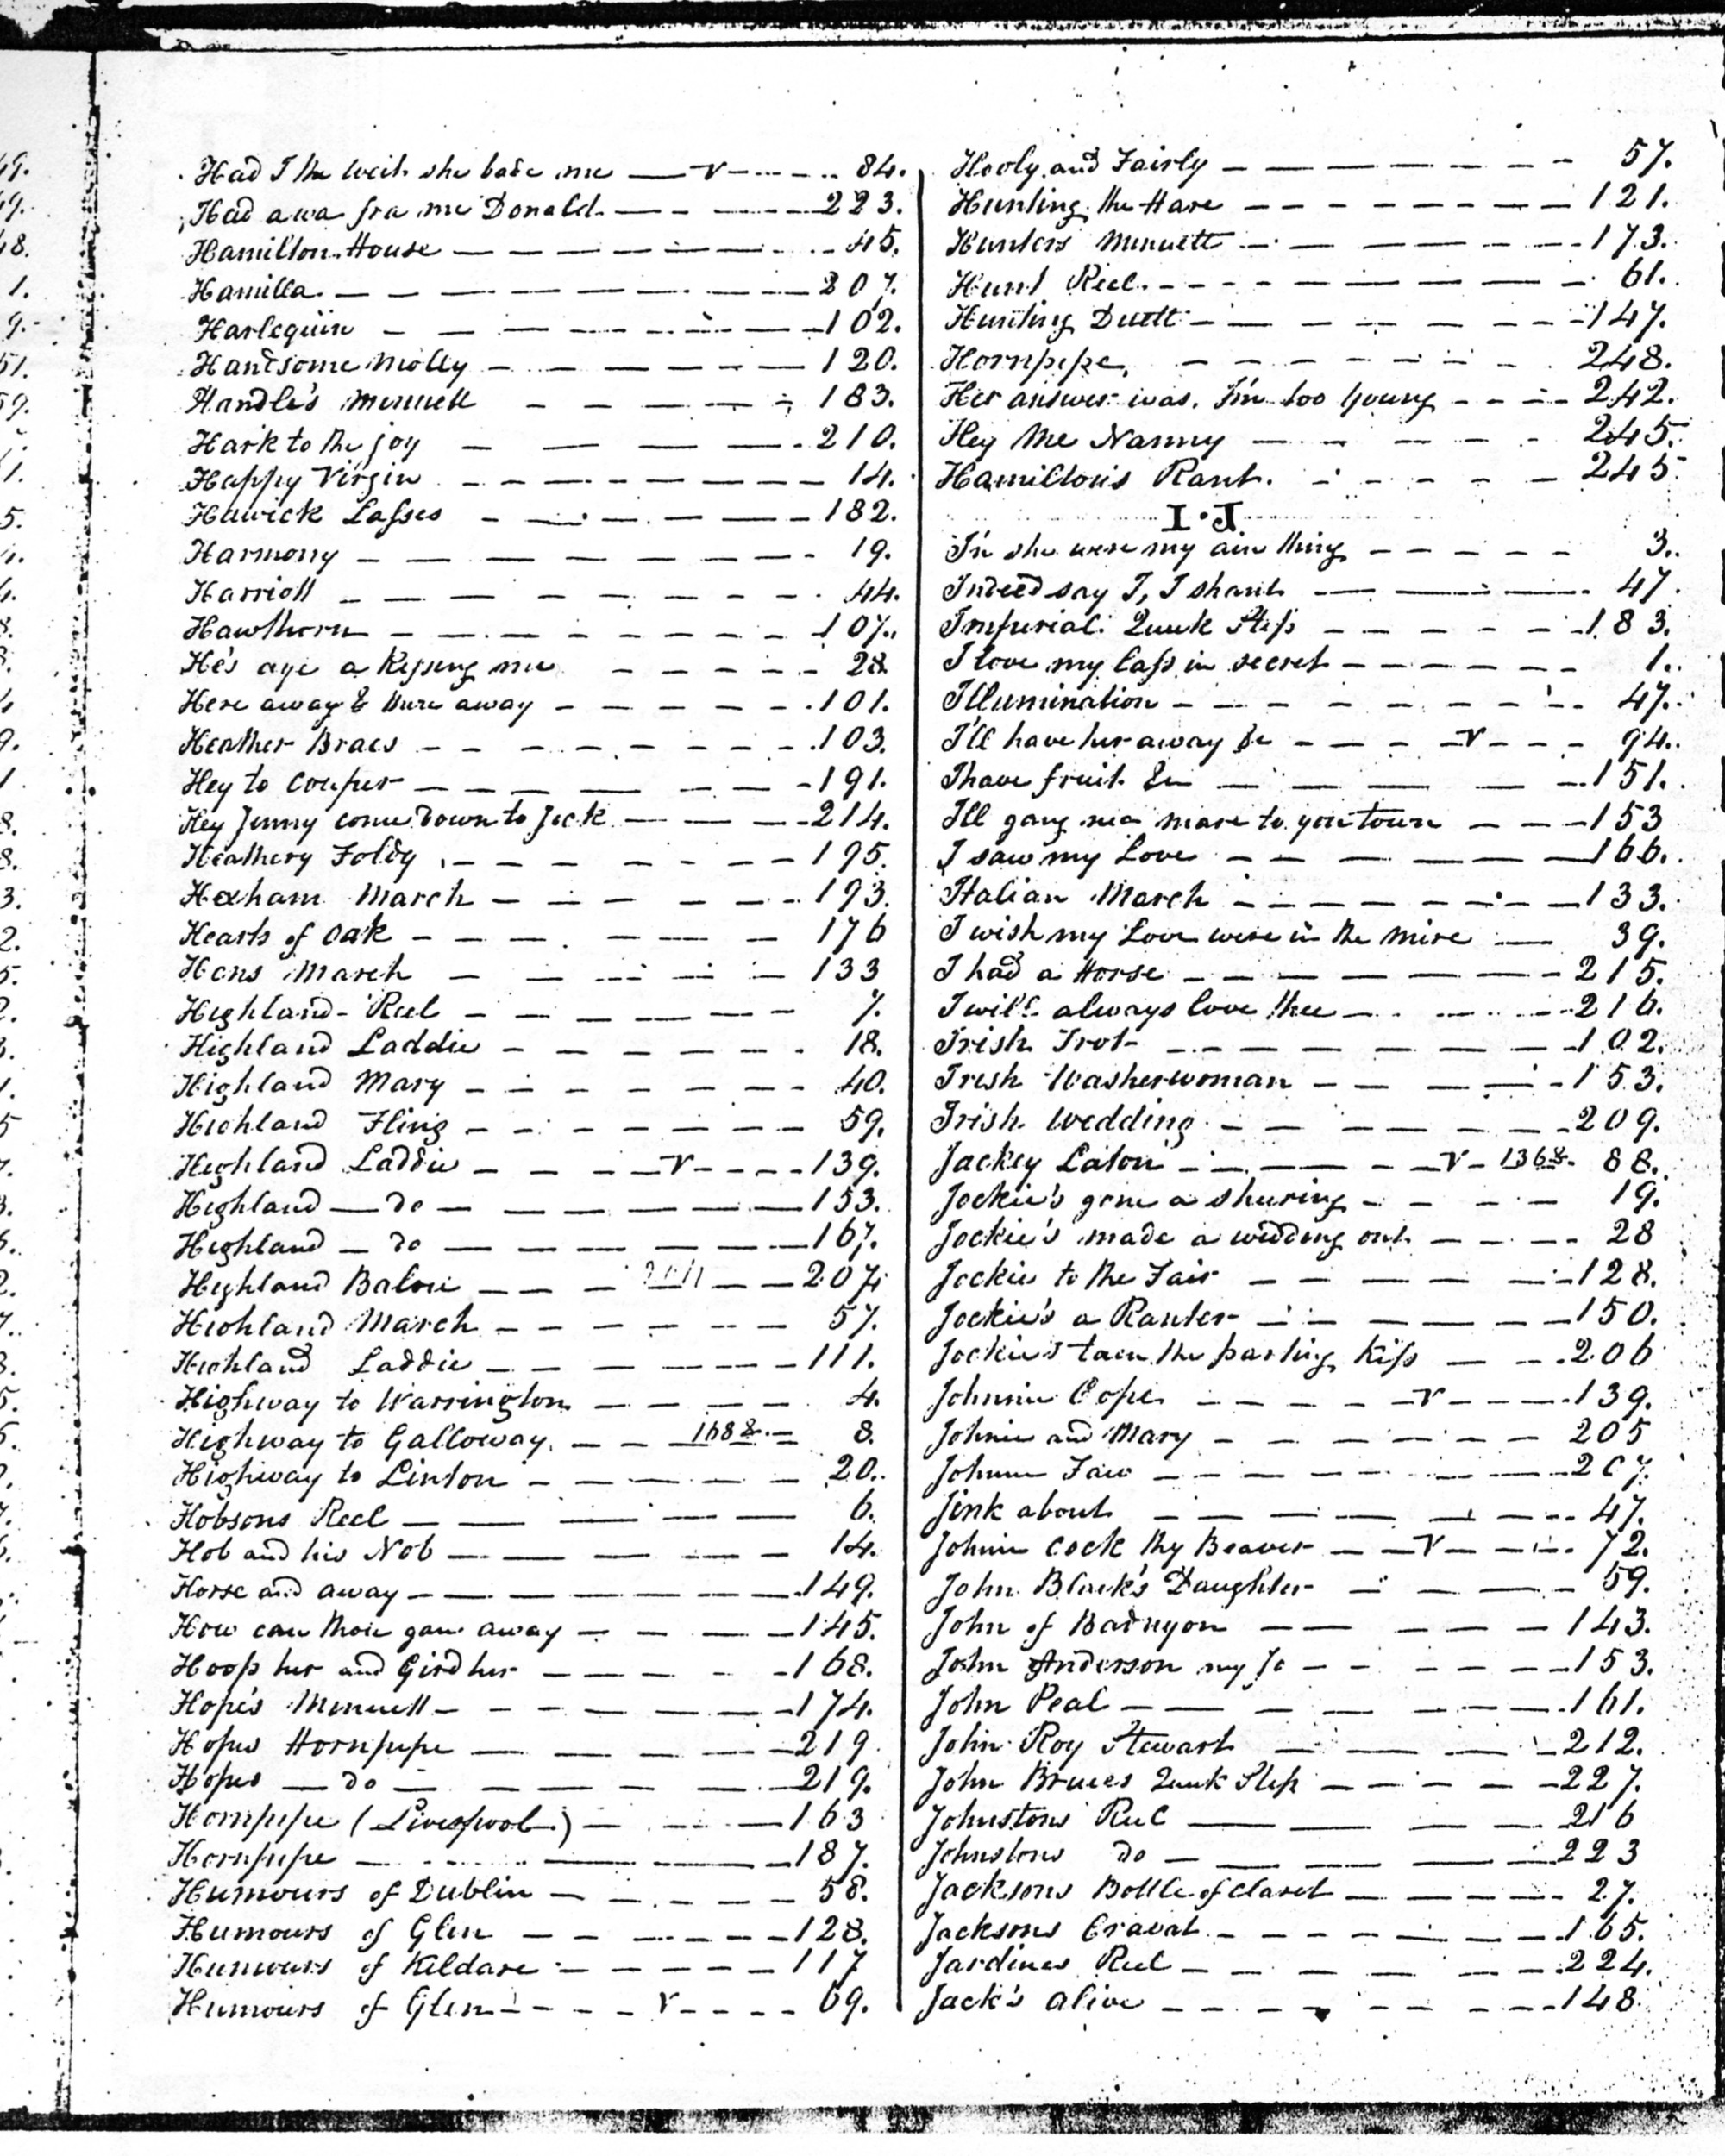 Had I the wit she bade me — V — 84.
Had awa fra me Donald — 223.
Hamilton House — 45.
Hamilla — 207.
Harlequin — 102.
Handsome Molly — 120.
Handle's Minuett — 183.
Hark to the joy — 210.
Happy Virgin — 14.
Hawick Lasses — 182.
Harmony — 19.
Harriott — 44.
Hawthorn — 107.
He's aye a Kissing me — 28.
Here away & there away — 101.
Heather Braes — 103.
Hey to Couper — 191.
Hey Jenny come down to Jock — 214.
Heathery Foldy — 195.
Hexham March — 193.
Hearts of Oak — 176
Hens March — 133
Highland Reel — 7.
Highland Laddie — 18.
Highland Mary — 40.
Highland Fling — 59.
Highland Laddie — V — 139.
Highland — do — 153.
Highland — do — 167.
Highland Balou — 207.
Highland March — 57.
Highland Laddie — 111.
Highway to Warrington — 4.
Highway to Galloway — 168 & — 8.
Highway to Linton — 20.
Hobsons Reel — 6.
Hob and his Nob — 14.
Horse and away — 149.
How can thou gan away — 145.
Hoop her and Gird her — 168.
Hope's Minuett — 174.
Hopes Hornpipe — 219.
Hopes — do — 219.
Hornpipe (Liverpool) — 163
Hornpipe — 187.
Humours of Dublin — 58.
Humours of Glen — 128.
Humours of Kildare — 117
Humours of Glen — V — 69.
Hooly and Fairly — 57.
Hunting the Hare — 121.
Hunters Minuett — 173.
Hunt Reel — 61.
Hunting Duett — 147.
Hornpipe — 248.
Her answer was, I'm too young — 242.
Hey Me Nanny — 245.
Hamilton's Rant. — 245
I·J
I'n she were my ain thing — 3.
Indeed say I, I shant — 47.
Imperial Quick Step — 183.
I love my Lass in secret — 1.
Illumination — 47.
I'll have her away &c — V — 94.
I have fruit &c — 151.
I'll gang nea mare to yon town — 153
I saw my Love — 166.
Italian March — 133.
I wish my Love were in the mire — 39.
I had a Horse — 215.
I will always love thee — 216.
Irish Trot — 102.
Irish Washerwoman — 153.
Irish Wedding — 209.
Jackey Laton — V — 136 & 88.
Jockie's gone a shearing — 19.
Jockie's made a wedding ont — 28
Jockie to the Fair — 128.
Jockie's a Ranter — 150.
Jockie's taen the parting Kiss — 206
Johnnie Cope — V — 139.
Johnie and Mary — 205
Johnie Faw — 207.
Jink about — 47.
Johnie cock thy Beaver — V — 72.
John Black's Daughter — 59.
John of Badnyon — 143.
John Anderson my Jo — 153.
John Peal — 161.
John Roy Stewart — 212.
John Bruces Quick Step — 227.
Johnstons Reel — 216
Johnstons do — 223
Jacksons Bottle of Claret — 27.
Jacksons Cravat — 165.
Jardines Reel — 224.
Jack's alive — 148.